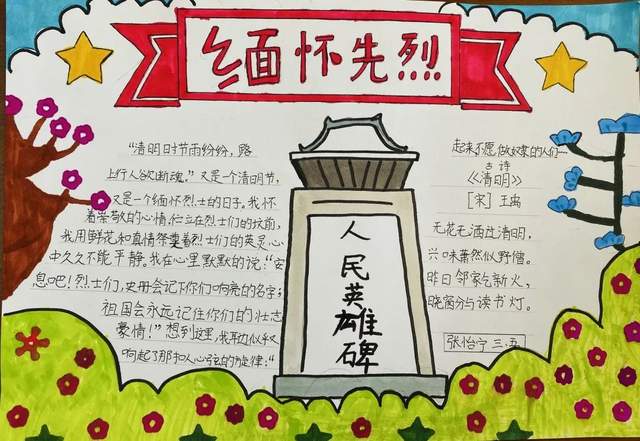 缅怀先烈
“清明时节雨纷纷，路
上行人欲断魂。”又是一个清明节，
又是一个缅怀烈士的日子。我怀
着崇敬的心情伫立在烈士们的坟前，
我用鲜花和真情祭奠着烈士们的英灵心
中久久不能平静。我在心里默默的说：“安
息吧！烈士们，史册会记下你们响亮的名字；
祖国会永远记住你们的壮志
豪情！”想到这里，我耳边似乎又
响起了那扣人心弦的旋律：“
人民英雄碑
起来不愿做奴隶的人们——
古诗
《清明》
[宋]王禹
无花无酒过清明，
兴味萧然似野僧。
昨日邻家乞新火，
晓窗分与读书灯。
张怡宁 三.五